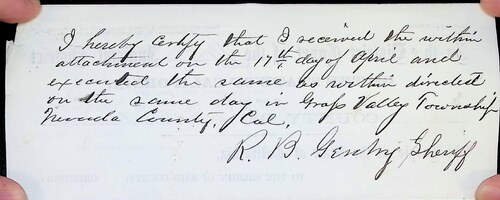 I hereby Certify that I received the within
attachment on the 17th day of April and
executed the same as within directed
on the same day in Grass Valley Township
Nevada County, Cal,
R. B. Gentry Sheriff